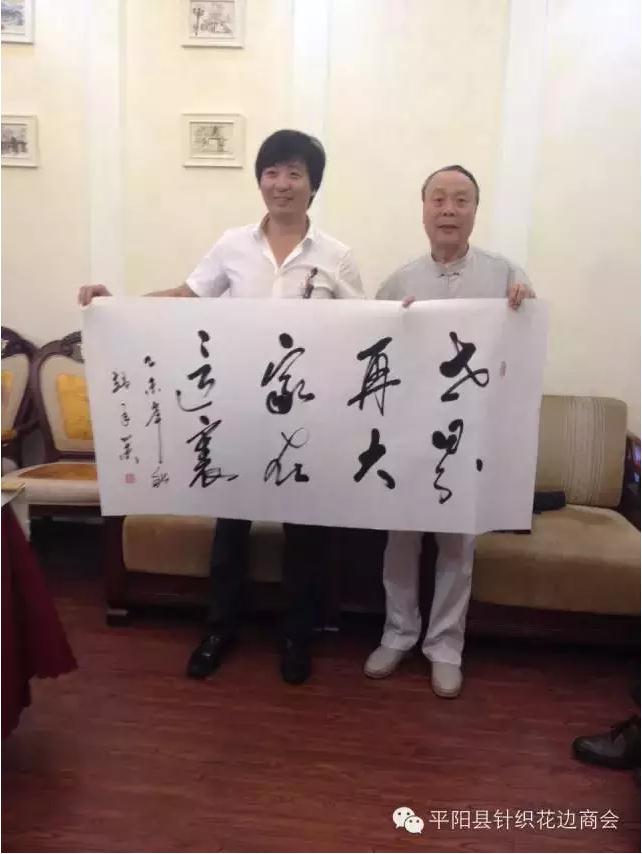 世界
再大
家在
这裏
乙未年秋
平阳县针织花边商会